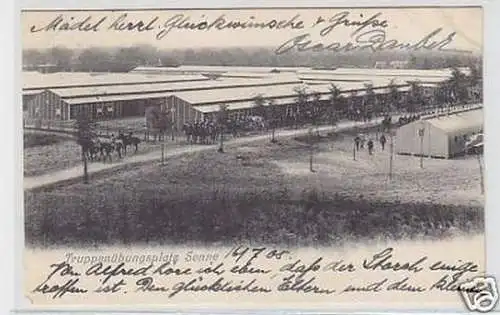 Mädel herrl. Glückwünsche + Grüße
Oscar
Truppenübungsplatz Senne 14/7 05.
Von Alfred höre ich eben, daß der Storch einge
troffen ist. Den glücklichen Eltern und dem kleinen